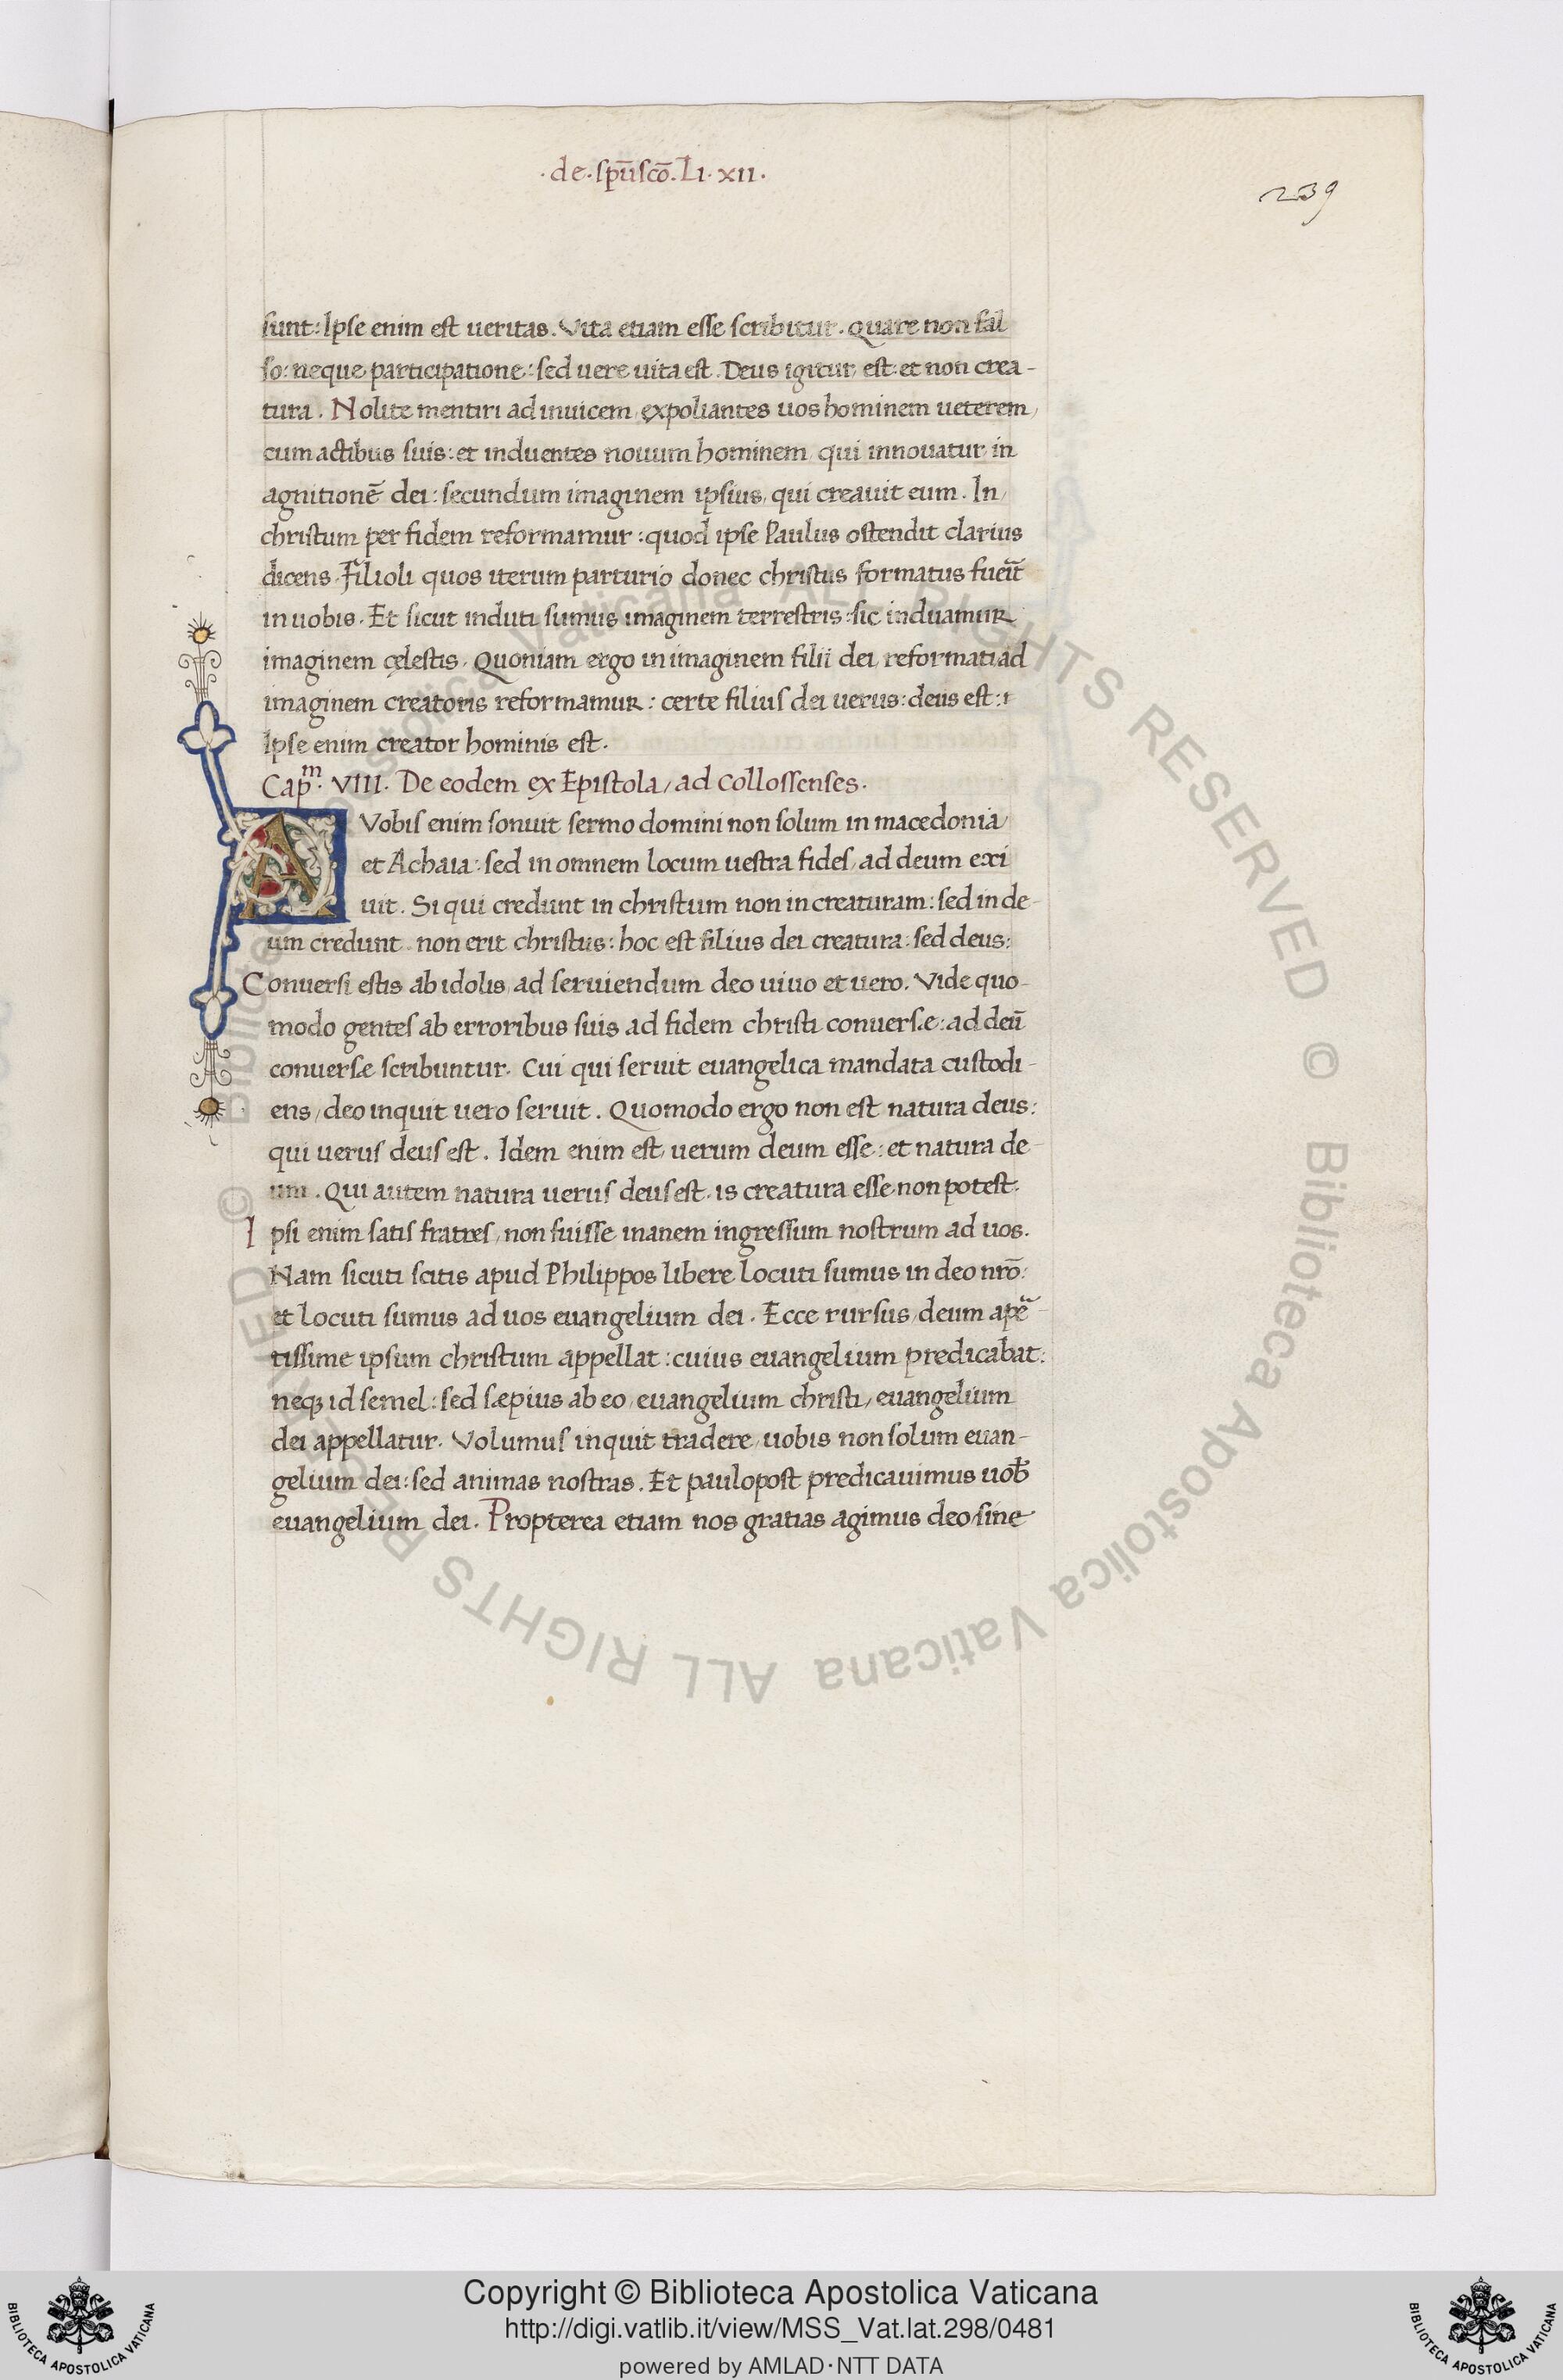 ·de·sp̄uscō·Li·xii·
239
sunt: Ipse enim est ueritas. Vita etiam esse scribitur. Quare non fal
so: neque participatione: sed uere uita est. Deus igitur est: et non crea-
tura. Nolite mentiri ad inuicem expoliantes uos hominem ueterem,
cum actibus suis: et induentes nouum hominem, qui innouatur in
agnitionē dei: secundum imaginem ipsius, qui creauit eum. In,
christum per fidem reformamur: quod ipse Paulus ostendit clarius
dicens. Filioli quos iterum parturio donec christus formatus fueīt
in uobis. Et sicut induti sumus imaginem terrestris: sic induamur
imaginem cęlestis. Quoniam ergo in imaginem filii dei, reformati ad
imaginem creatoris reformamur: certe filius dei uerus: deus est: i
Ipse enim creator hominis est.
Cap^m. VIII. De eodem ex Epistola, ad Collossenses.
A Vobis enim sonuit sermo domini non solum in macedonia,
et Achaia: sed in omnem locum uestra fides, ad deum exi
uit. Si qui credunt in christum non in creaturam: sed in de-
um credunt non erit christus: hoc est filius dei creatura: sed deus:
Conuersi estis ab idolis, ad seruiendum deo uiuo et uero. Vide quo-
modo gentes ab erroribus suis ad fidem christi conuersæ: ad deū
conuersæ scribuntur. Cui qui seruit euangelica mandata custodi-
ens, deo inquit uero seruit. Quomodo ergo non est natura deus:
qui uerus deus est. Idem enim est, uerum deum esse: et natura de-
um. Qui autem natura uerus deus est, is creatura esse non potest.
Ipsi enim satis fratres, non fuisse inanem ingressum nostrum ad uos.
Nam sicuti scitis apud Philippos libere locuti sumus in deo nrō:
et locuti sumus ad uos euangelium dei. Ecce rursus, deum apē-
tissime ipsum christum appellat: cuius euangelium predicabat:
neqꝫ id semel: sed sæpius ab eo, euangelium christi, euangelium
dei appellatur. Volumus inquit tradere, uobis non solum euan-
gelium dei: sed animas nostras. Et paulopost predicauimus uob̄
euangelium dei. Propterea etiam nos gratias agimus deo sine
© Biblioteca Apostolica Vaticana ALL RIGHTS RESERVED © Biblioteca Apostolica Vaticana ALL RIGHTS RESERVED
Copyright © Biblioteca Apostolica Vaticana
http://digi.vatlib.it/view/MSS_Vat.lat.298/0481
powered by AMLAD·NTT DATA
BIBLIOTECA APOSTOLICA VATICANA
BIBLIOTECA APOSTOLICA VATICANA